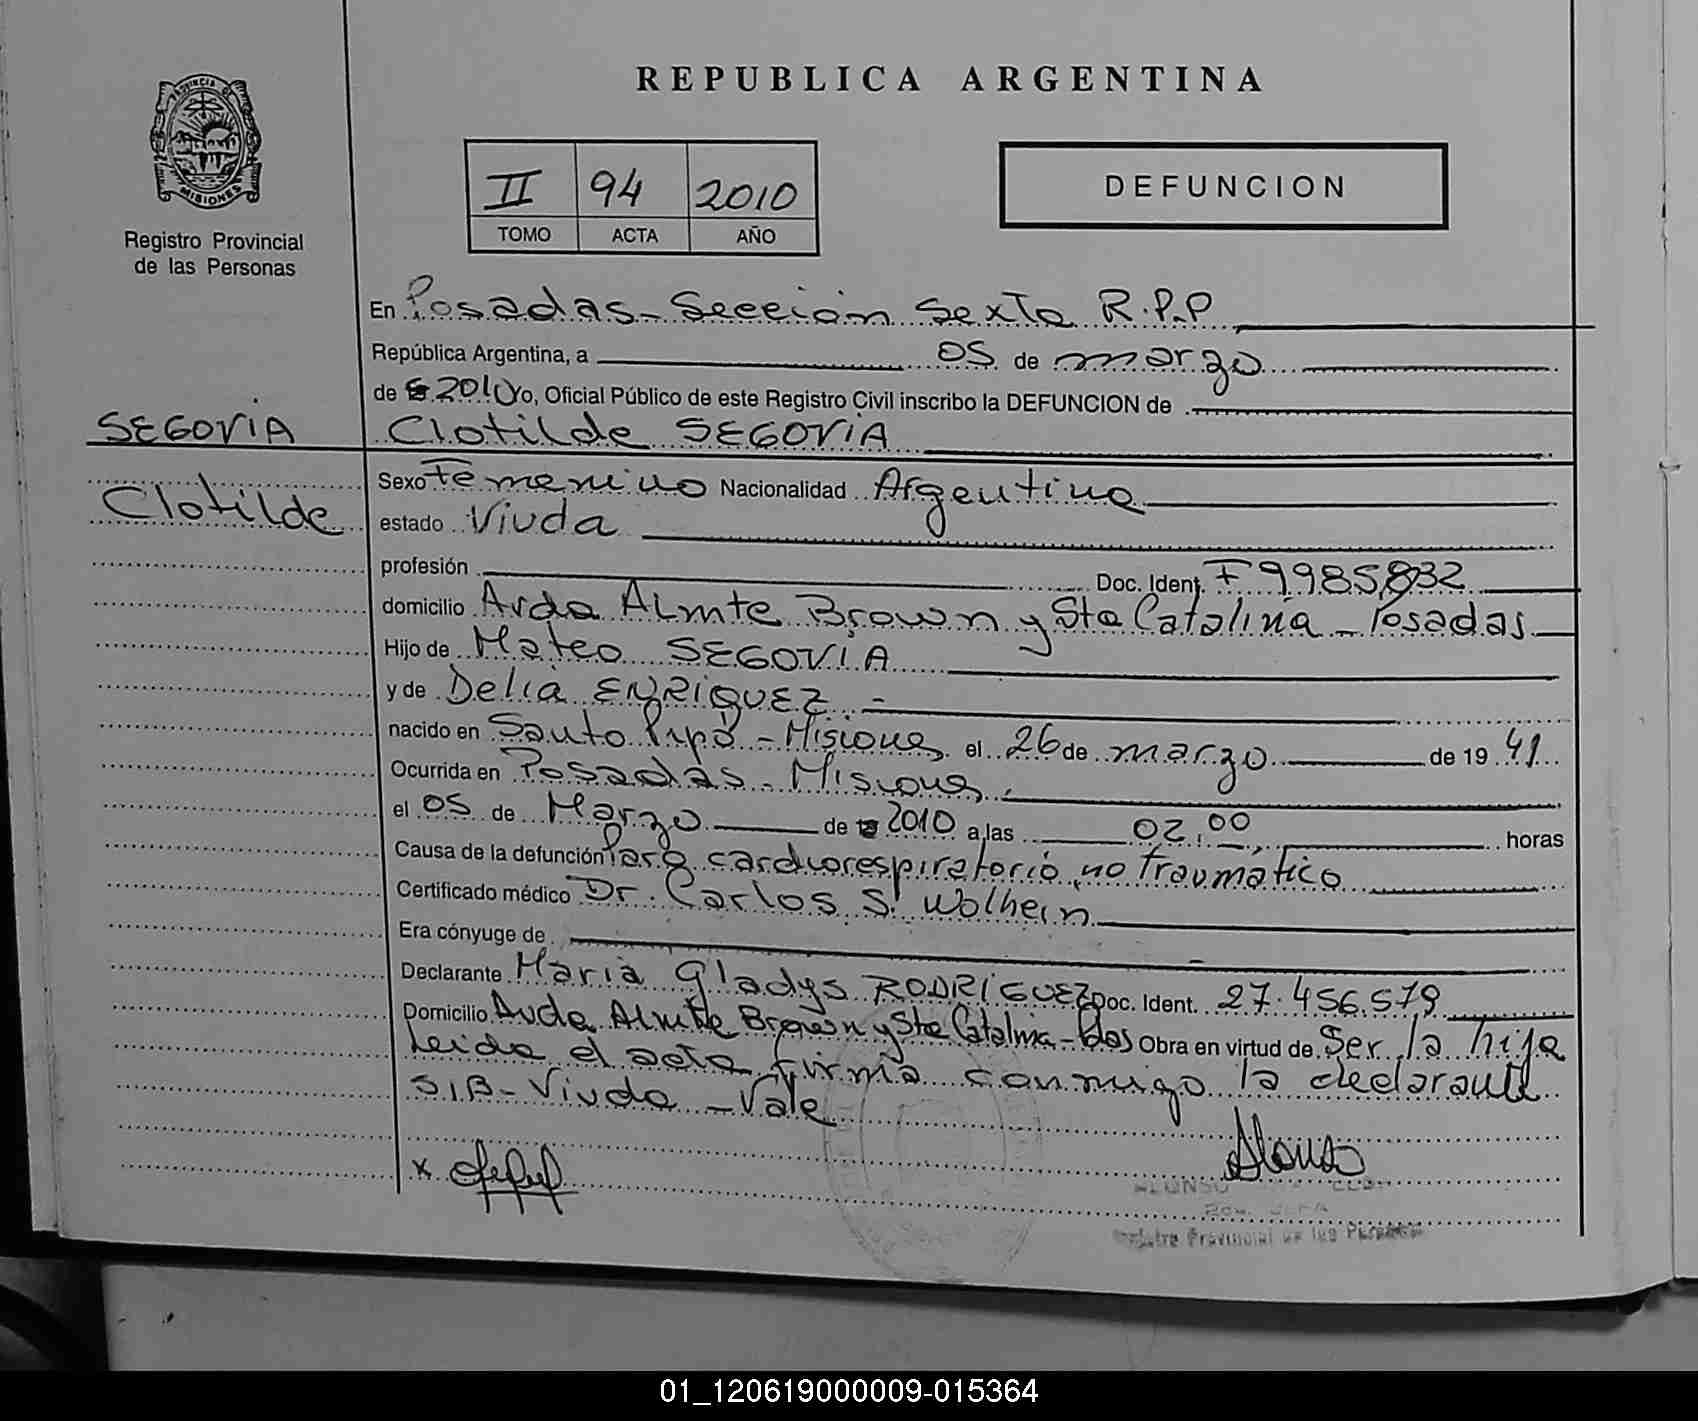 REPUBLICA ARGENTINA
PROVINCIA DE MISIONES
Registro Provincial
de las Personas
II 94 2010
TOMO ACTA AÑO
DEFUNCION
En Posadas - Sección Sexta R.P.P
República Argentina, a 05 de marzo
de 2010 Yo, Oficial Público de este Registro Civil inscribo la DEFUNCION de
SEGOVIA
Clotilde
Clotilde SEGOVIA
Sexo Femenino Nacionalidad Argentina
estado Viuda
profesión Doc. Ident. F 9985832
domicilio Avda Almte Brown y Sta Catalina - Posadas
Hijo de Mateo SEGOVIA
y de Delia ENRIQUEZ -
nacido en Santo Pipó - Misiones el 26 de marzo de 19 41
Ocurrida en Posadas - Misiones
el 05 de Marzo de 2010 a las 02,00 horas
Causa de la defunción Paro cardiorespiratorio no traumático
Certificado médico Dr. Carlos S. Wolhein
Era cónyuge de
Declarante María Gladys RODRÍGUEZ Doc. Ident. 27.456.579
Domicilio Avda Almte Brown y Sta Catalina - Pdas Obra en virtud de Ser la hija
Leida el acta firma conmigo la declarante
S/B - Viuda - Vale
x
Alonso
ALONSO
Registro Provincial de las Personas
01_120619000009-015364